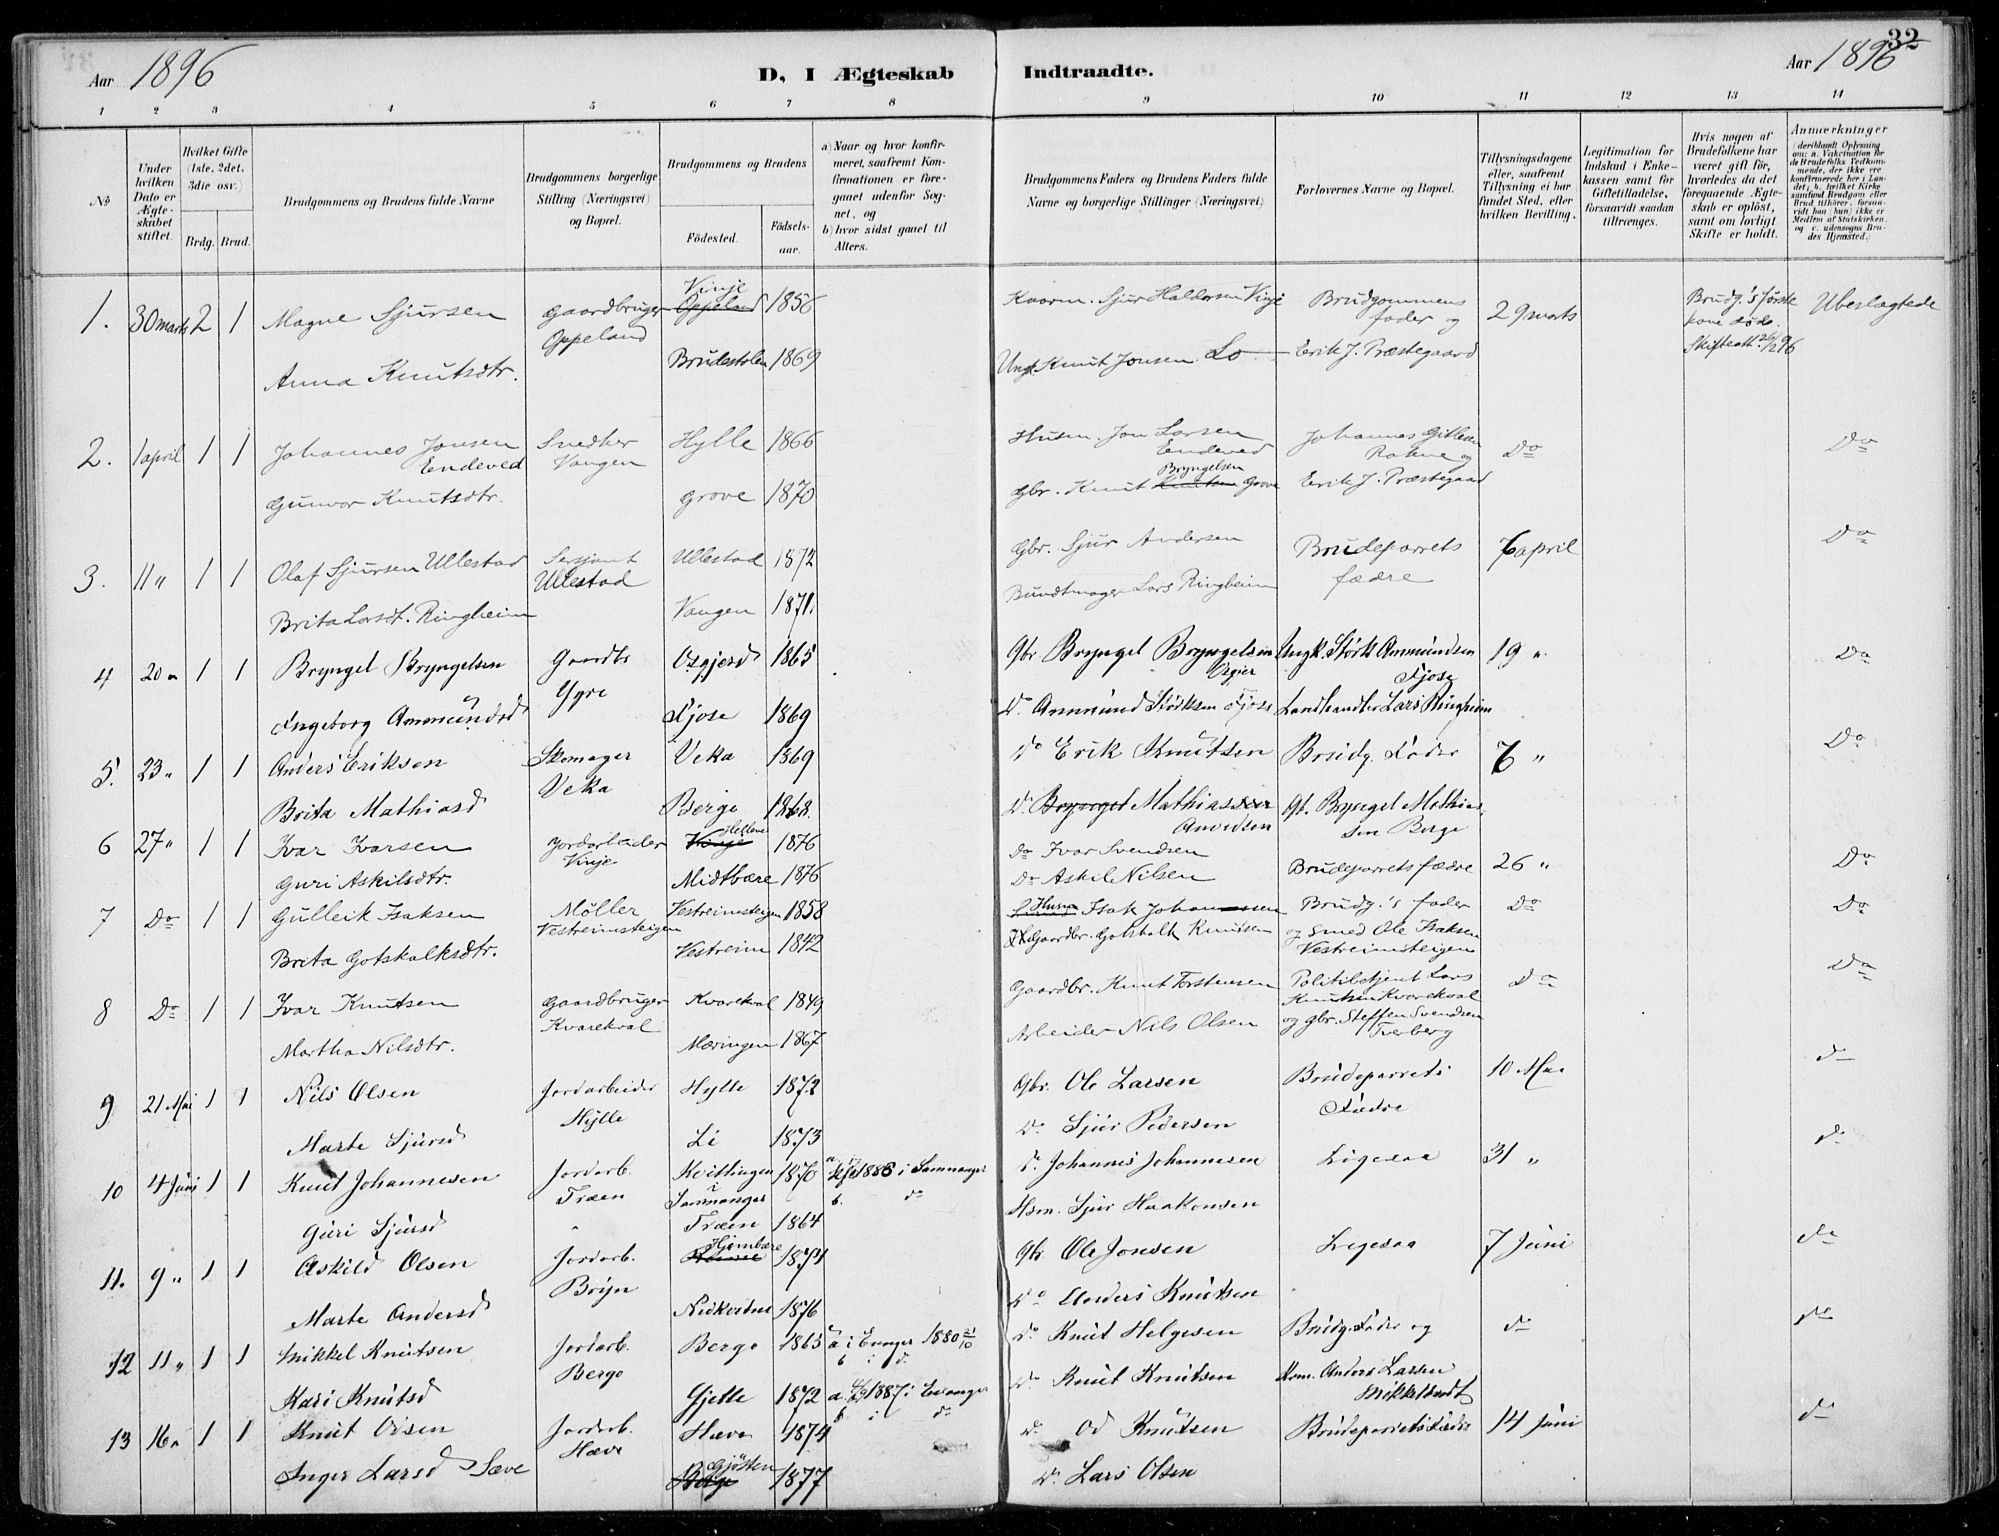 32
Aar 1896 D, I Ægteskab Indtraadte. Aar 1896
1 2 3 4 5 6 7 8 9 10 11 12 13 14
No
Under hvilken Dato er Ægteskabet stiftet.
Hvilket Gifte (1ste, 2det, 3die osv.)
Brdg. Brud.
Brudgommens og Brudens fulde Navne
Brudgommens borgerlige Stilling (Næringsvei) og Bopæl.
Brudgommens og Brudens
Fødested. Fødselsaar.
a) Naar og hvor konfirmeret, saafremt Konfirmationen er foregaaet udenfor Sognet, og
b) hvor sidst gaaet til Alters.
Brudgommens Faders og Brudens Faders fulde Navne og borgerlige Stillinger (Næringsvei)
Forlovernes Navne og Bopæl.
Tillysningsdagene eller, saafremt Tillysning ei har fundet Sted, efter hvilken Bevilling.
Legitimation for Indskud i Enkekassen samt for Giftetilladelse, forsaavidt saadan tiltrænges.
Hvis nogen af Brudefolkene har været gift før, hvorledes da det foregaaende Ægteskab er opløst, samt om lovligt Skifte er holdt.
Anmærkninger (deriblandt Oplysning om: a. Vakcination for de Brudefolks Vedkommende, der ikke ere konfirmerede her i Landet; b. hvilket Kirkesamfund Brudgom eller Brud tilhører, forsaavidt han (hun) ikke er Medlem af Statskirken, og c. udensogns Brudes Hjemsted.)
1. 30 marts 2 1 Magne Sjursen Gaardbruger Oppeland Vinje Oppeland 1856 Kaarm. Sjur Haldorsen Vinje Brudgommens fader og 29 marts Brudg.'s første kone død. Skifteatt. 26/2 96 Ubeslægtede
Anna Knutsdtr. Brudestolen 1869 Ungk. Knut Jonsen Lo Erik J. Præstegaard
2. 1 april 1 1 Johannes Jonsen Endeved Snedker Vangen Hylle 1866 Husm. Jon Larsen Endeved Johannes Gitlesen Rokne og Do Do
Gunvor Knutsdtr. Grove 1870 Gbr. Knut Knutsen Bryngelsen Grove Erik J. Præstegaard
3. 11 " 1 1 Olaf Sjursen Ullestad Sersjant Ullestad Ullestad 1872 Gbr. Sjur Andersen Brudeparrets fædre 6 april Do
Brita Larsdt. Ringheim Vangen 1871. Bundtmager Lars Ringheim
4 20 " 1 1 Bryngel Bryngelsen Gaardbr Ygre Osgjerd 1865 Gbr Bryngel Bryngelsen Ungk. Størk Ammundsen Fjose 19 " Do
Ingeborg Ammundsd Fjose 1869 Do Ammund Størksen Fjose Landhandler Lars Ringheim
5. 23 " 1 1 Anders Eriksen Skomager Veka Veka 1869 Do Erik Knutsen Brudg. Fader 6 " Do
Brita Mathiasd Berge 1868. Do Bryngel Mathias Anvedsen Gb. Bryngel Mathiassen Berge
6 27 " 1 1 Ivar Ivarsen Jordarbeider Vinje Vinje 1876 Do Ivar Svendsen Brudeparrets fædre 26 " Do
Guri Askilsdtr. Midtbære 1876 Do Askil Nilsen
7 Do 1 1 Gulleik Isaksen Møller Vestreimsteigen Vestreimsteigen 1858 Husm Isak Johannessen Brudg.'s fader Do Do
Brita Gotskalksdtr. Vestreim 1842 Gaardbr. Gotskalk Knutsen og Smed Ole Isaksen Vestreimsteigen
8 Do 1 1 Ivar Knutsen Gaardbruger Kvarekval Kvarekval 1849 Gaardbr. Knut Torstensen Politibetjent Lars Knutsen Kvarekval Do Do
Martha Nilsdtr. Mæringen 1867 Arbeider Nils Olsen og Gbr. Steffen Svendsen Tverberg
9 21 Mai 1 1 Nils Olsen Jordarbeider Hylle Hylle 1872 Gbr. Ole Larsen Brudeparrets Fædre 10 Mai do
Marte Sjursd Li 1873 Do Sjur Pedersen
10 4 Juni 1 1 Knut Johannesen Jordarb. Træen Kvittingen i Samnanger 1870 1886 i Samnanger b. do do Johannes Johannesen Ligesaa 31 " do
Guri Sjursd " Træen 1864 Hsm. Sjur Haakonsen
11. 9 " 1 1 Askild Olsen Jordarb. Bryn Hjembære 1874 Gbr Ole Jonsen Ligesaa 7 Juni do
Marte Andersd Nedkvitne 1876 Do Anders Knutsen
12 11 " 1 1 Mikkel Knutsen Jordarb. Berge Berge 1865 a i Evanger 1880 21/10 b i d. do Knut Helgesen Brudg. Fader og do do
Kari Knutsd Gjelle 1872 a. 1887 i Evanger b i do do Knut Knutsen Hsm. Anders Larsen
13 16 " 1 1 Knut Odsen Jordarb. Hæve Hæve 1874 do Od Knutsen Brudeparrets Fædre 14 Juni do
Inger Larsd Sæve Berge Gjøsten 1877 do Lars Olsen